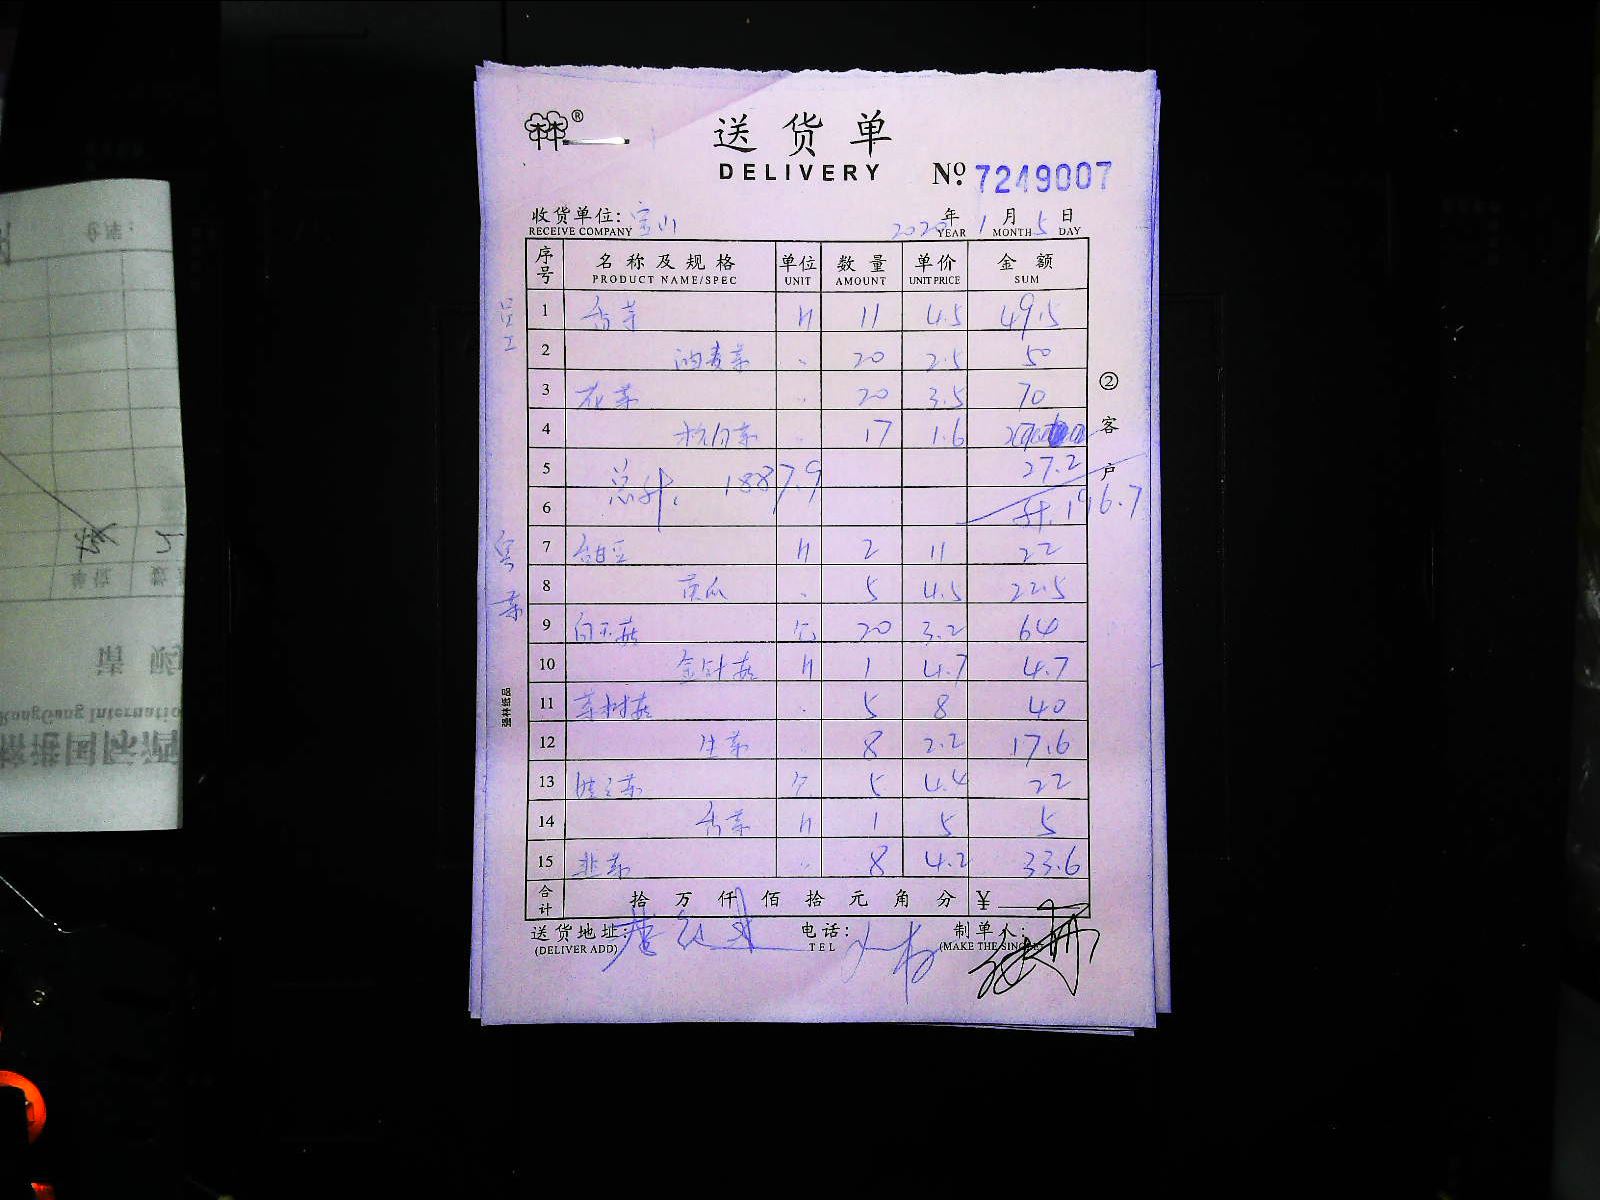 林®
送货单
DELIVERY
No. 7249007
收货单位: 宝山
RECEIVE COMPANY
2020年 1月 5日
YEAR MONTH DAY
序号 名称及规格 单位 数量 单价 金额
PRODUCT NAME/SPEC UNIT AMOUNT UNIT PRICE SUM
员工
1 香芹 斤 11 4.5 49.5
2 油麦菜 〃 20 2.5 50
3 花菜 〃 20 3.5 70
4 杭白菜 〃 17 1.6
5 27.2
总计: 1887.9
6 计: 196.7
客菜
7 甜豆 斤 2 11 22
8 黄瓜 〃 5 4.5 22.5
9 白玉菇 个 20 3.2 64
10 金针菇 斤 1 4.7 4.7
11 茶树菇 〃 5 8 40
12 生菜 〃 8 2.2 17.6
13 娃娃菜 个 5 4.4 22
14 香菜 斤 1 5 5
15 韭菜 〃 8 4.2 33.6
合计 拾 万 仟 佰 拾 元 角 分 ¥
送货地址: 电话: 制单人:
(DELIVER ADD) TEL (MAKE THE SINGLE)
② 客户
强林纸品